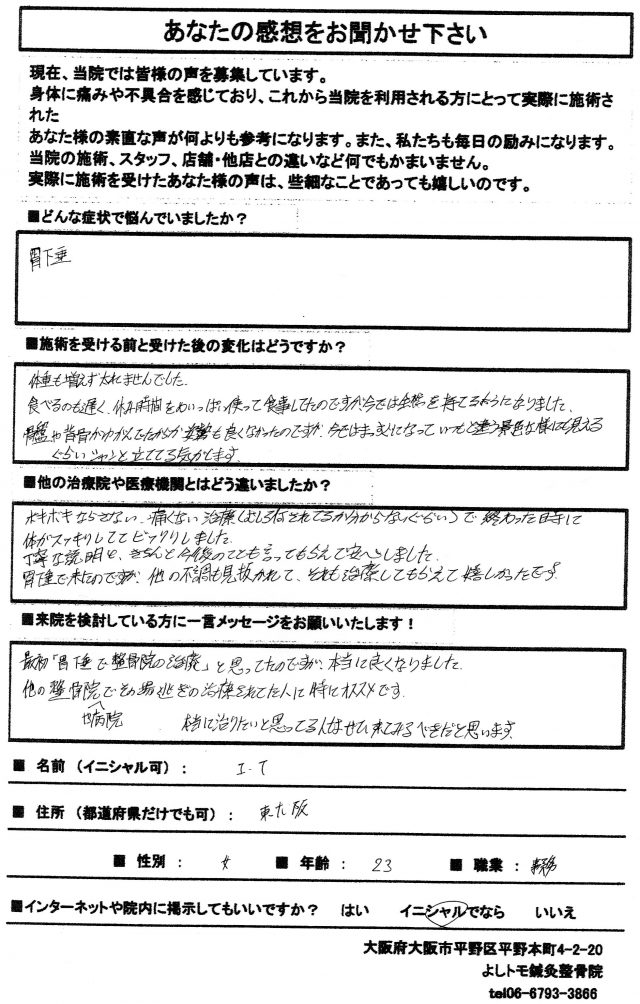 あなたの感想をお聞かせ下さい
現在、当院では皆様の声を募集しています。
身体に痛みや不具合を感じており、これから当院を利用される方にとって実際に施術さ
れた
あなた様の素直な声が何よりも参考になります。また、私たちも毎日の励みになります。
当院の施術、スタッフ、店舗・他店との違いなど何でもかまいません。
実際に施術を受けたあなた様の声は、些細なことであっても嬉しいのです。
■どんな症状で悩んでいましたか？
胃下垂
■施術を受ける前と受けた後の変化はどうですか？
体重も増えず太れませんでした。
食べるのも遅く、休み時間をめいっぱい使って食事してたのですが、今では余裕を持てるようになりました。
骨盤や背骨がゆがんでたからか姿勢も良くなかったのですが、今ではまっすぐになっていつもと違う景色な様に見える
ぐらいシャンと立ててる気がします。
■他の治療院や医療機関とはどう違いましたか？
ボキボキならさない、痛くない治療（むしろ何されてるか分からないぐらい）で終わった時に
体がスッキリしててビックリしました。
丁寧な説明と、きちんと今後のことも言ってもらえて安心しました。
胃下垂で来たのですが、他の不調も見抜かれて、それも治療してもらえて嬉しかったです。
■来院を検討している方に一言メッセージをお願いいたします！
最初「胃下垂で整骨院の治療」と思ってたのですが、本当に良くなりました。
他の整骨院でその場逃ぎの治療をされてた人に特にオススメです。
や病院
本当に治りたいと思ってる人はぜひ来てみるべきだと思います。
■ 名前（イニシャル可）： I.T
■ 住所（都道府県だけでも可）： 東大阪
■ 性別 ： 女 ■ 年齢 ： 23 ■ 職業 ： 事務
■インターネットや院内に掲示してもいいですか？ はい イニシャルでなら いいえ
大阪府大阪市平野区平野本町4-2-20
よしトモ鍼灸整骨院
tel06-6793-3866